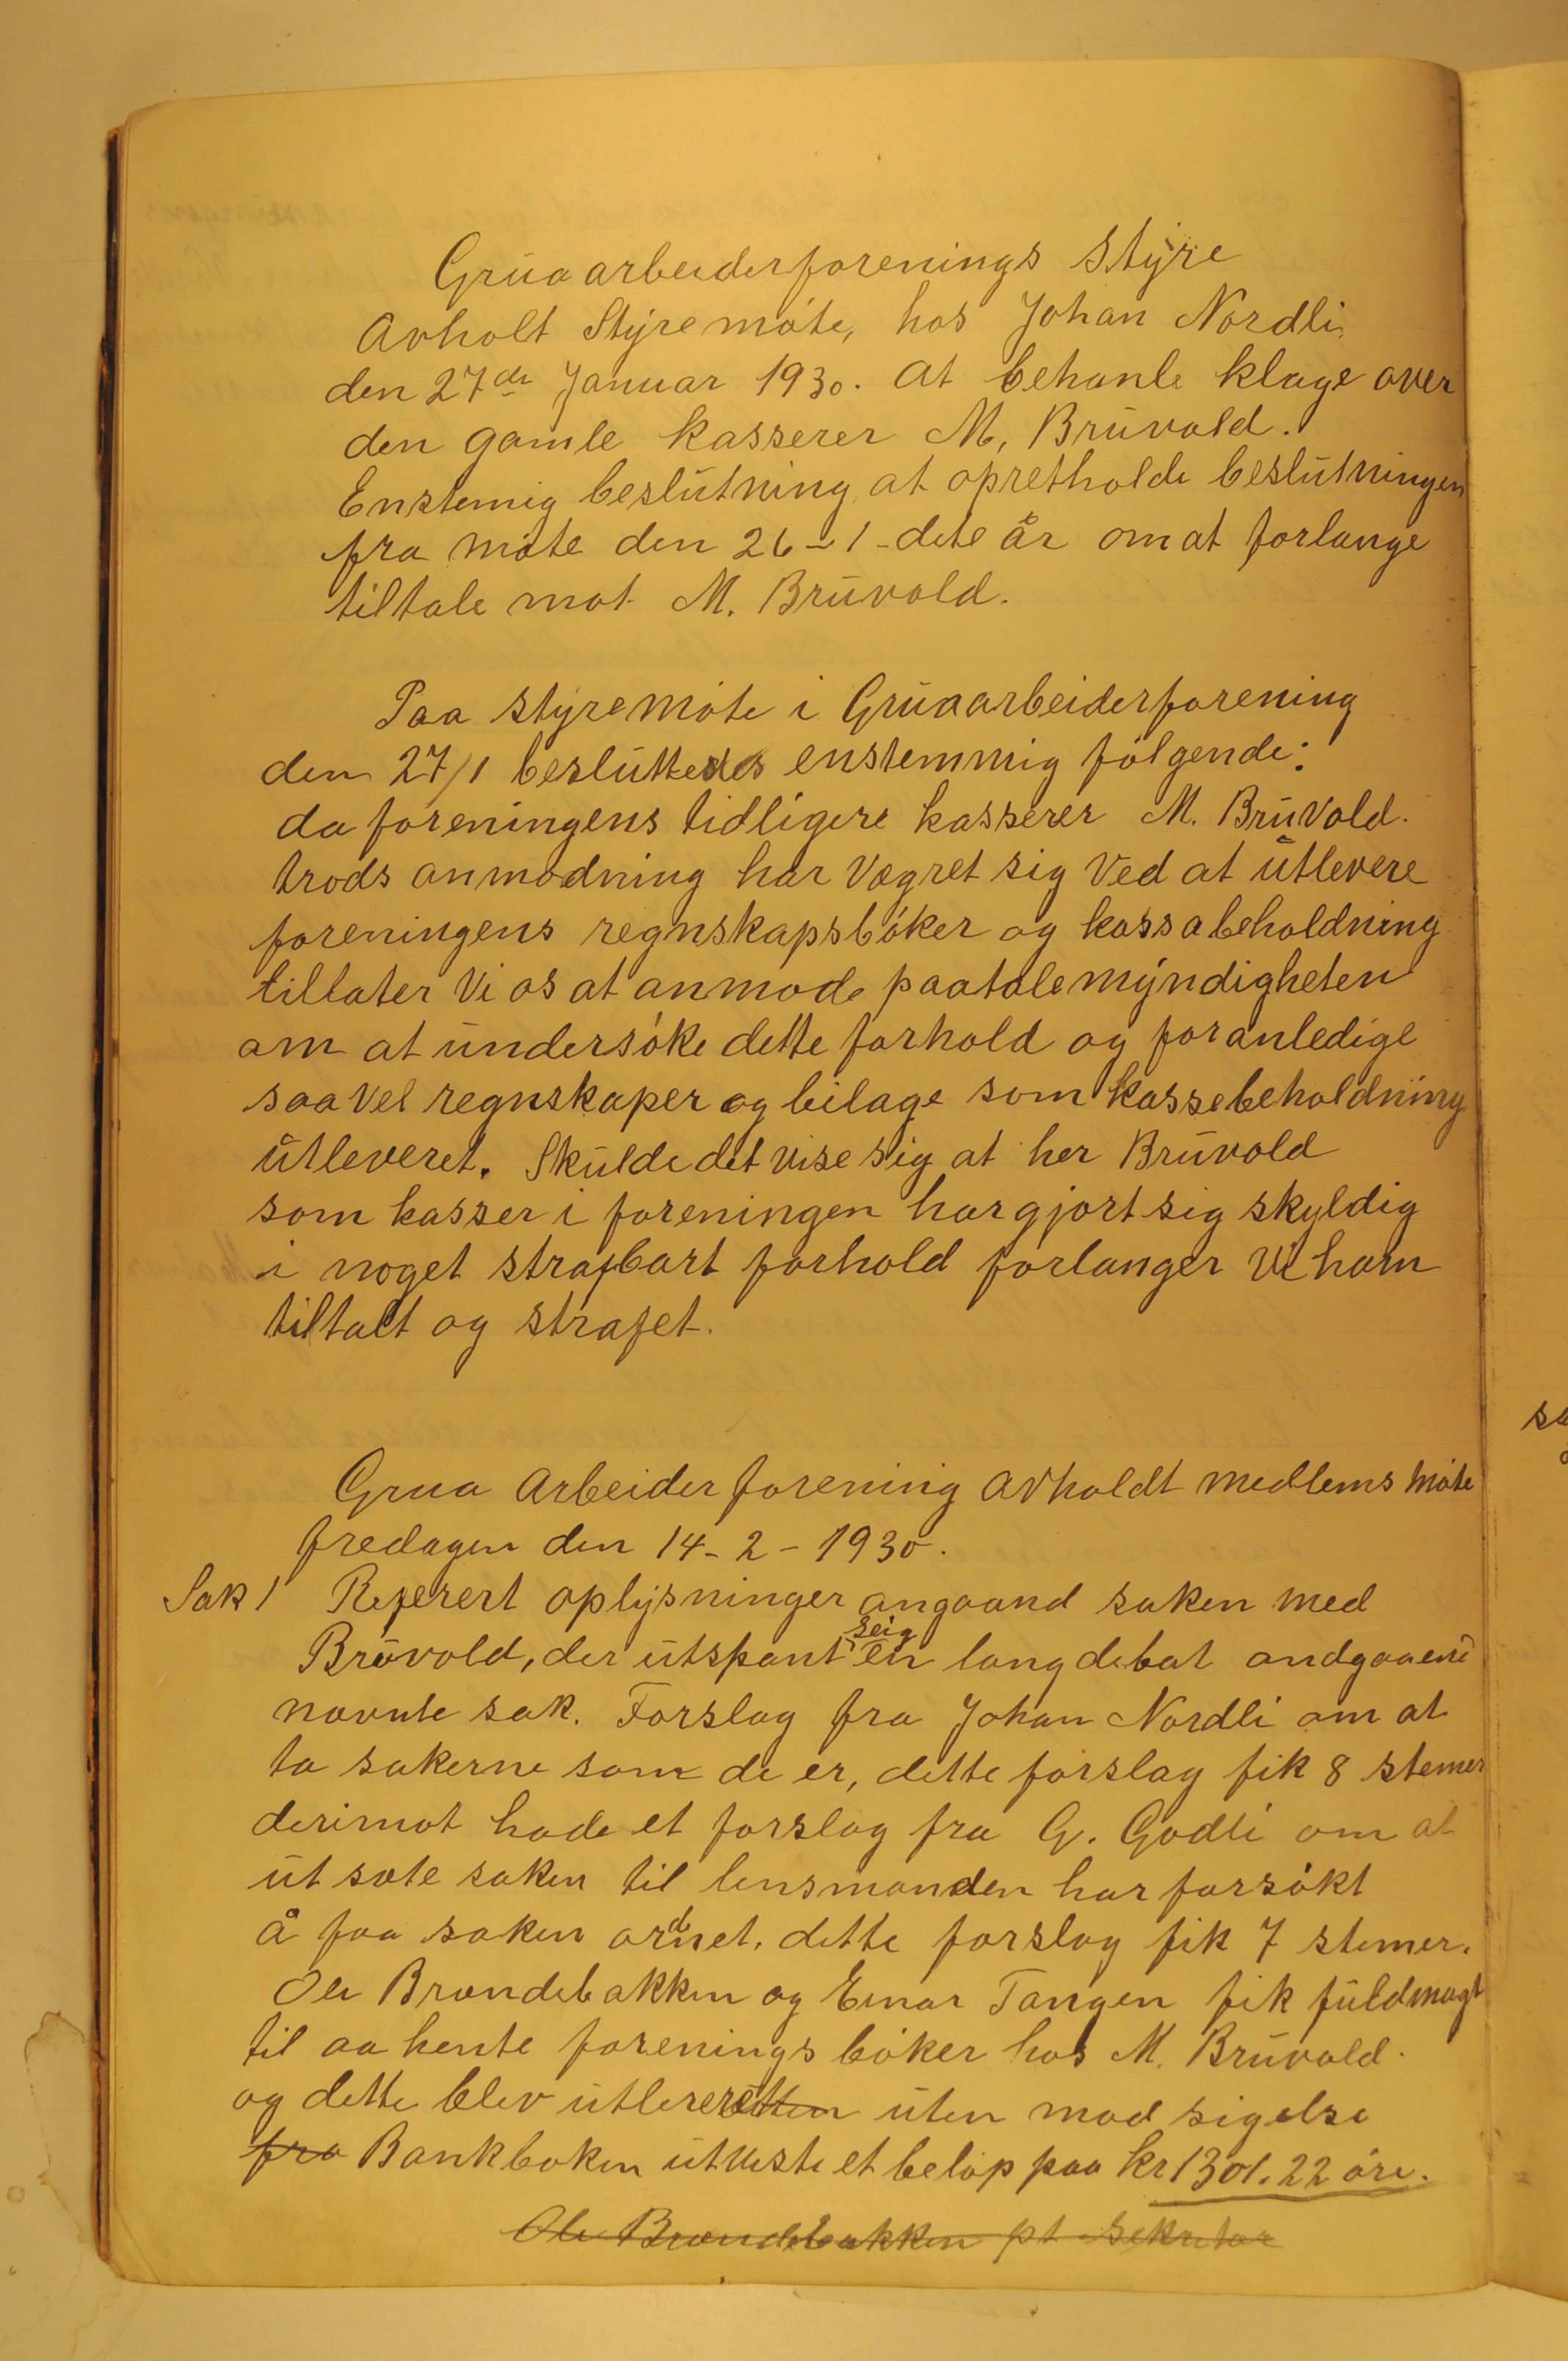 Gruaarbeiderforenings Styre
Avholt Styremöte, hos Johan Nordli
den 27de Januar 1930. at behanle klage over
den gamle kasserer M. Bruvold.
Enstemig beslutning at opretholde beslutningen
fra möte den 26-1-dete år om at forlange
tiltale mot M. Bruvold.
Paa styremöte i Gruaarbeiderforening
den 27/1 besluttedes enstemmig fölgende:
da foreningens tidligere kasserer M. Bruvold.
trods anmodning har vægret sig ved at utlevere
foreningens regnskapsböker og kassabeholdning
tillater vi os at anmode paatalemyndigheten
om at undersöke dette forhold og foranledige
saavel regnskaper og bilage som kassebeholdning
utleveret. Skulde det vise sig at her Bruvold
som kasser i foreningen har gjort sig skyldig
i noget strafbart forhold forlanger vi ham
tiltalt og strafet.
Grua Arbeiderforening avholdt medlemsmöte
fredagen den 14-2-1930.
Sak 1 Referert oplysninger angaand saken med
Bruvold, der utspant seig en lang debat andgaaend
nævnte sak. Forslag fra Johan Nordli om at
ta sakerne som de er, dette forslag fik 8 stemer
derimot hade et forslag fra G. Godli om at
utsæte saken til lensmanden har forsökt
å faa saken ordnet, dette forslag fik 7 stemer.
Ole Brændebakken og Einar Tangen fik fuldmagt
til aa hente forenings böker hos M. Bruvold.
og dette blev utlereretten uten mod sigelse
fra Bankboken utviste et belöp paa kr 1301.22 öre.
Ole Brændebakken pt sekretær